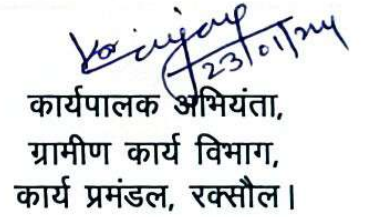 23/01/24
कार्यपालक अभियंता,
ग्रामीण कार्य विभाग,
कार्य प्रमंडल, रक्सौल।